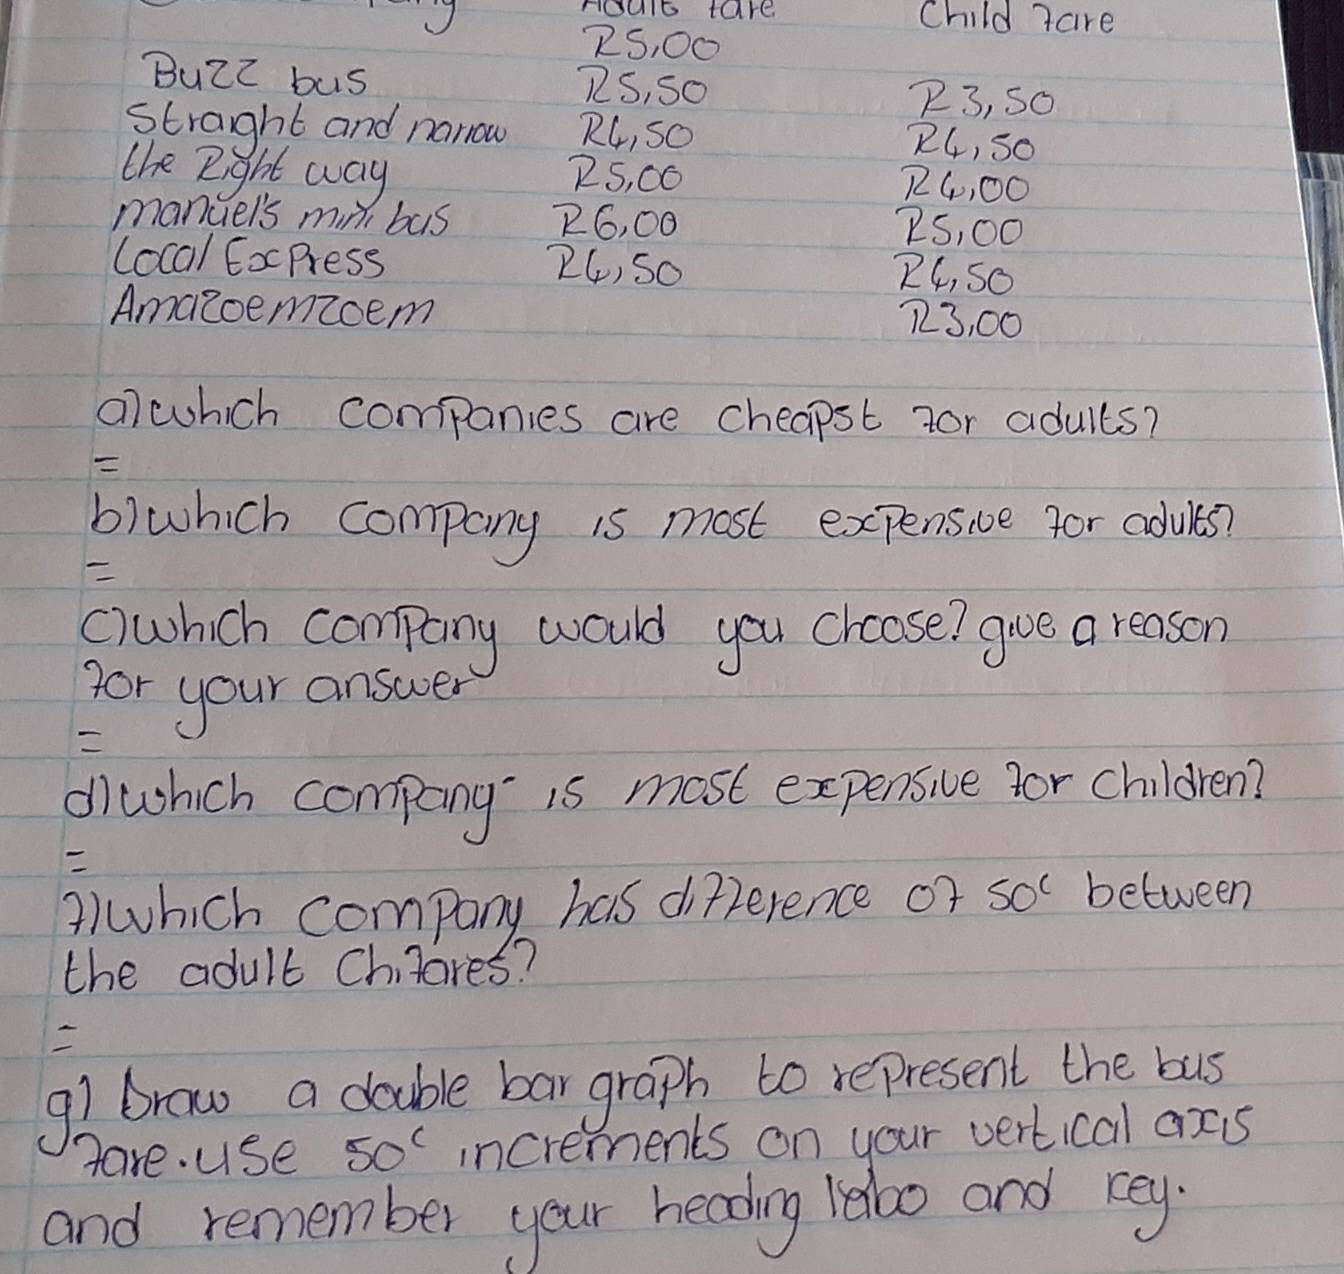 Adult fare Child fare
R5,00
Buzz bus R5,50 R3,50
Straight and narrow R4,50 R4,50
the Right way R5,00 R4,00
manuel's mini bus R6,00 R5,00
Local Express R4,50 R4,50
Amazoemzoem R3,00
a) which companies are cheapst for adults?
=
b) which company is most expensive for adults?
=
c) which company would you choose? give a reason
for your answer
=
d) which company is most expensive for children?
=
f) which company has difference of 50c between
the adult Chifares?
=
g) Draw a double bar graph to represent the bus
fare. use 50c increments on your vertical axis
and remember your heading and key.